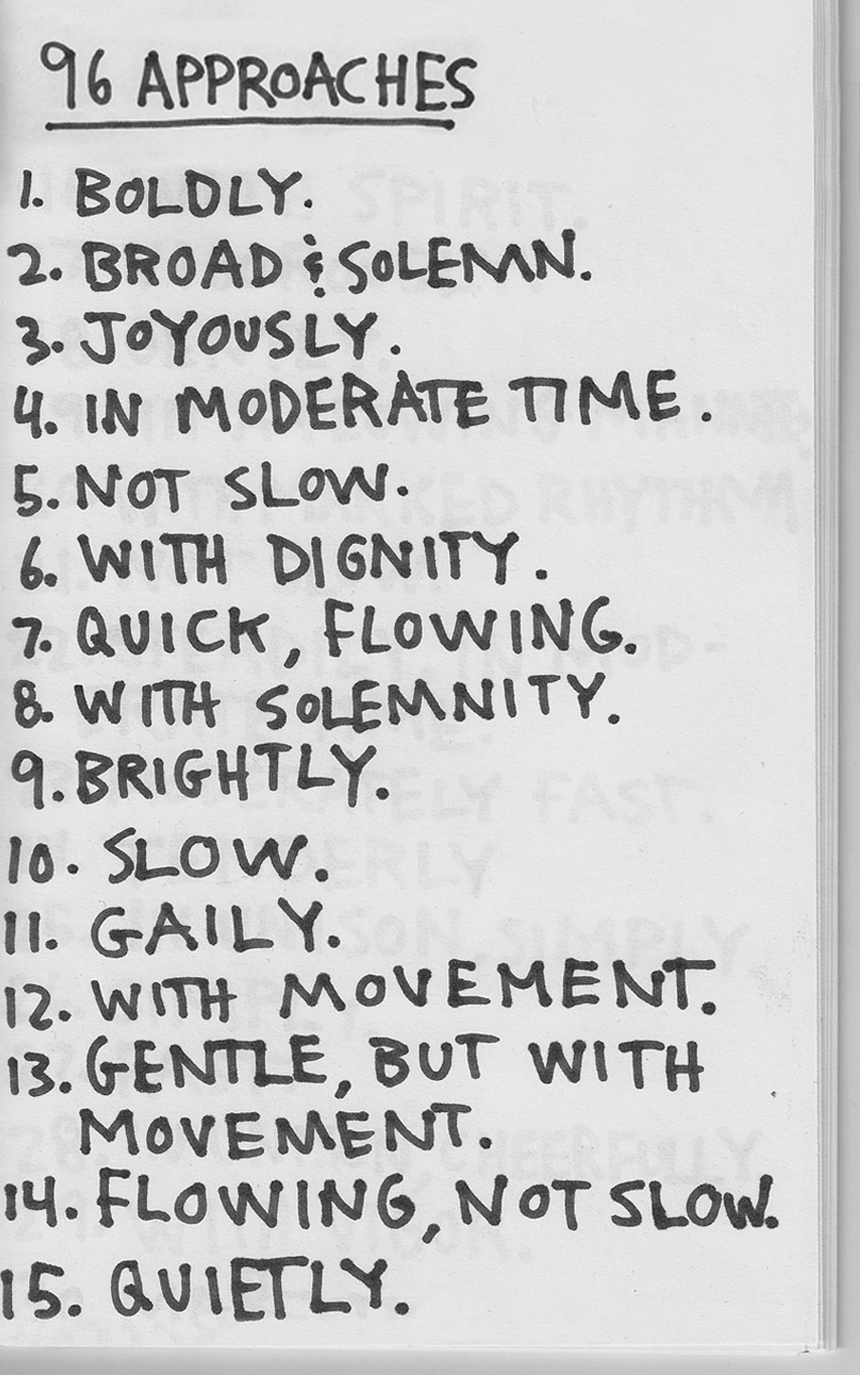 96 APPROACHES
1. BOLDLY.
2. BROAD & SOLEMN.
3. JOYOUSLY.
4. IN MODERATE TIME.
5. NOT SLOW.
6. WITH DIGNITY.
7. QUICK, FLOWING.
8. WITH SOLEMNITY.
9. BRIGHTLY.
10. SLOW.
11. GAILY.
12. WITH MOVEMENT.
13. GENTLE, BUT WITH
MOVEMENT.
14. FLOWING, NOT SLOW.
15. QUIETLY.